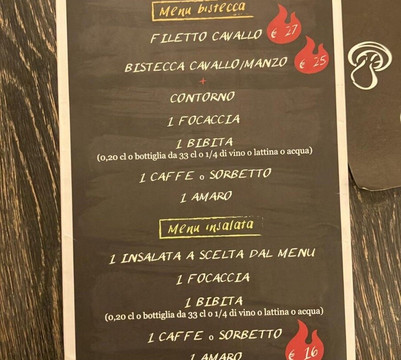 Menu bistecca
FILETTO CAVALLO € 27
BISTECCA CAVALLO/MANZO € 25
+
CONTORNO
1 FOCACCIA
1 BIBITA
(0,20 cl o bottiglia da 33 cl o 1/4 di vino o lattina o acqua)
1 CAFFE o SORBETTO
1 AMARO
Menu insalata
1 INSALATA A SCELTA DAL MENU
1 FOCACCIA
1 BIBITA
(0,20 cl o bottiglia da 33 cl o 1/4 di vino o lattina o acqua)
1 CAFFE o SORBETTO
1 AMARO € 16